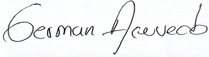 German Acevedo